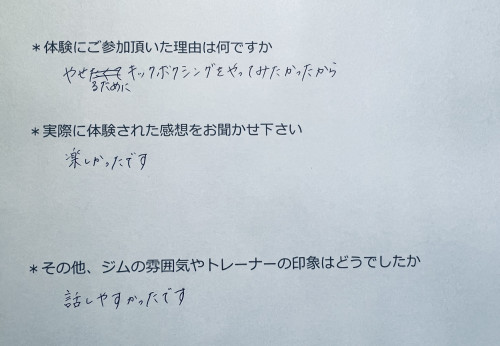 *体験にご参加頂いた理由は何ですか
やせるためにキックボクシングをやってみたかったから
*実際に体験された感想をお聞かせ下さい
楽しかったです
*その他、ジムの雰囲気やトレーナーの印象はどうでしたか
話しやすかったです